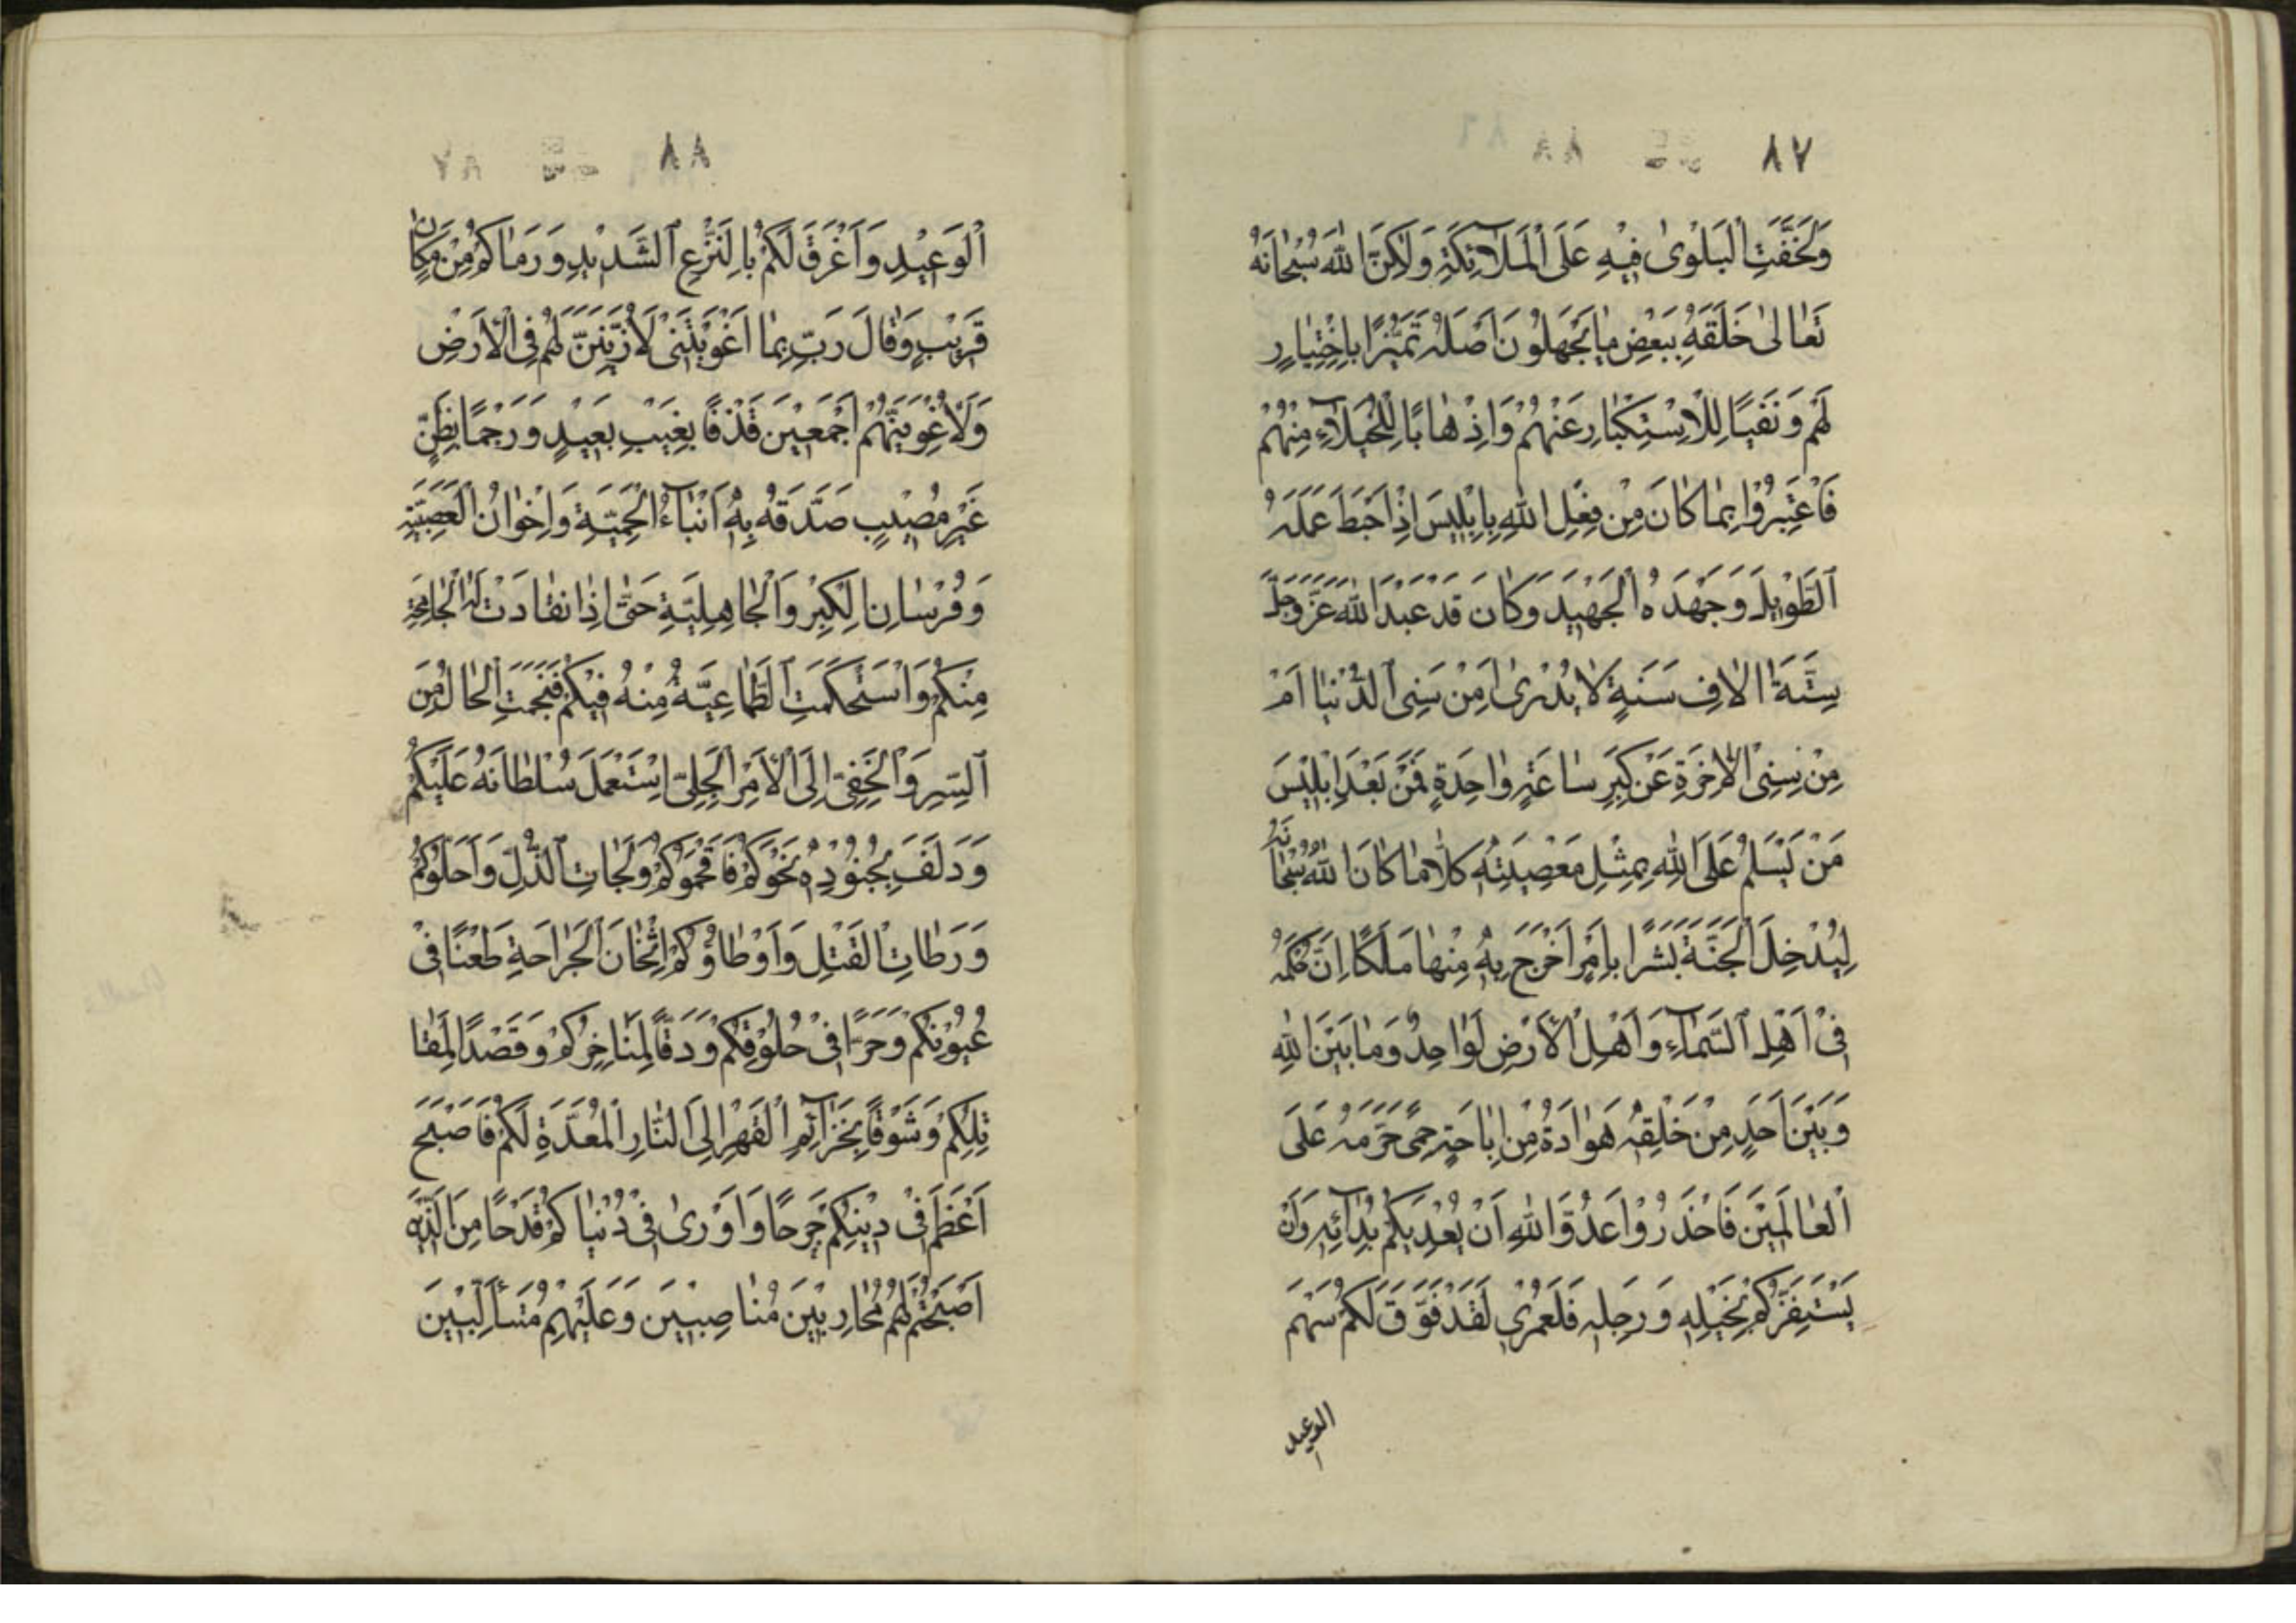 ٨٧
وَلَخَفَّتِ الْبَلْوٰى فِيْهِ عَلَى الْمَلَآئِكَةِ وَلٰكِنَّ اللهَ سُبْحَانَهُ
تَعَالىٰ خَلَقَهُ بِبَعْضِ مٰا يَجْهَلُوْنَ اَصْلَهُ تَمَيُّزًا بِاِخْتِيٰارٍ
لَهُمْ وَنَفْيًا لِلْاِسْتِكْبٰارِ عَنْهُمْ وَاِذْهٰابًا لِلْخُيَلَآءِ مِنْهُمْ
فَاعْتَبِرُوْا بِمٰا كٰانَ مِنْ فِعْلِ اللهِ بِاِبْلِيْسَ اِذْ اَحْبَطَ عَمَلَهُ
الطَّوِيْلَ وَجَهْدَهُ الْجَهِيْدَ وَكٰانَ قَدْ عَبَدَ اللهَ عَزَّ وَجَلَّ
سِتَّةَ اٰلٰافِ سَنَةٍ لٰا يُدْرٰى اَمِنْ سِنِى الدُّنْيٰا اَمْ
مِنْ سِنِى الْاٰخِرَةِ عَنْ كِبَرِ سٰاعَةٍ وٰاحِدَةٍ فَمَنْ بَعْدَ اِبْلِيْسَ
مَنْ يَسْلَمُ عَلَى اللهِ بِمِثْلِ مَعْصِيَتِهِ كَلّٰا مٰا كٰانَ اللهُ سُبْحٰانَهُ
لِيُدْخِلَ الْجَنَّةَ بَشَرًا بِاَمْرٍ اَخْرَجَ بِهِ مِنْهٰا مَلَكًا اِنَّ حُكْمَهُ
فِىْ اَهْلِ السَّمٰآءِ وَاَهْلِ الْاَرْضِ لَوٰاحِدٌ وَمٰا بَيْنَ اللهِ
وَبَيْنَ اَحَدٍ مِنْ خَلْقِهِ هَوٰادَةٌ مِنْ اِبٰاحَةِ حِمًى حَرَّمَهُ عَلَى
الْعٰالَمِيْنَ فَاحْذَرُوْا عَدُوَّ اللهِ اَنْ يُعْدِيَكُمْ بِدٰآئِهِ وَاَنْ
يَسْتَفِزَّكُمْ بِخَيْلِهِ وَرَجِلِهِ فَلَعَمْرِيْ لَقَدْ فَوَّقَ لَكُمْ سَهْمَ
الوعيد
٨٨
الْوَعِيْدِ وَاَغْرَقَ لَكُمْ بِالنَّزْعِ الشَّدِيْدِ وَرَمٰاكُمْ مِنْ مَكٰانٍ
قَرِيْبٍ وَقٰالَ رَبِّ بِمٰا اَغْوَيْتَنِىْ لَاُزَيِّنَنَّ لَهُمْ فِى الْاَرْضِ
وَلَاُغْوِيَنَّهُمْ اَجْمَعِيْنَ قَذْفًا بِغَيْبٍ بَعِيْدٍ وَرَجْمًا بِظَنٍّ
غَيْرِ مُصِيْبٍ صَدَّقَهُ بِهِ اَبْنَآءُ الْحَمِيَّةِ وَاِخْوٰانُ الْعَصَبِيَّةِ
وَفُرْسٰانُ الْكِبْرِ وَالْجٰاهِلِيَّةِ حَتّٰى اِذَا انْقٰادَتْ لَهُ الْجٰامِحَةُ
مِنْكُمْ وَاسْتَحْكَمَتِ الطَّمٰاعِيَّةُ مِنْهُ فِيْكُمْ فَنَجَمَتِ الْحٰالُ مِنَ
السِّرِّ وَالْخَفِىِّ اِلَى الْاَمْرِ الْجَلِىِّ اسْتَعْمَلَ سُلْطٰانَهُ عَلَيْكُمْ
وَدَلَفَ بِجُنُوْدِهِ نَحْوَكُمْ فَاَقْحَمُوْكُمْ وَلَجٰاتِ الذُّلِّ وَاَحَلُّوْكُمْ
وَرَطٰاتِ الْقَتْلِ وَاَوْطَاؤُكُمْ اِثْخٰانَ الْجَرٰاحَةِ طَعْنًا فِىْ
عُيُوْنِكُمْ وَحَزًّا فِىْ حُلُوْقِكُمْ وَدَقًّا لِمَنٰاخِرِكُمْ وَقَصْدًا لِمَقٰا
تِلِكُمْ وَسَوْقًا بِخَزَآئِمِ الْقَهْرِ اِلَى النّٰارِ الْمُعَدَّةِ لَكُمْ فَاَصْبَحَ
اَعْظَمَ فِىْ دِيْنِكُمْ جَرْحًا وَاَوْرٰى فِىْ دُنْيٰاكُمْ قَدْحًا مِنَ الَّذِيْنَ
اَصْبَحْتُمْ لَهُمْ مُحٰارِبِيْنَ مُنٰاصِبِيْنَ وَعَلَيْهِمْ مُتَأَلِّبِيْنَ